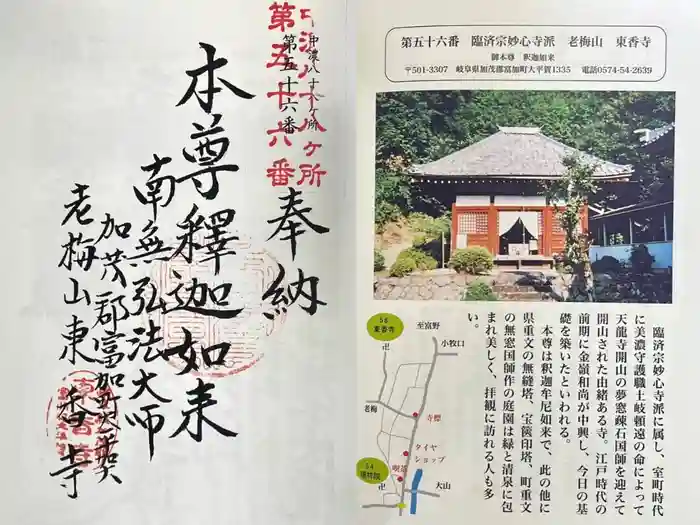 中濃八十八ヶ所
第五十六番
奉納
本尊釋迦如来
南無弘法大師
加茂郡富加町大平賀
老梅山東香寺
第五十六番 臨済宗妙心寺派 老梅山 東香寺
御本尊 釈迦如来
〒501-3307 岐阜県加茂郡富加町大平賀1335 電話0574-54-2639
臨済宗妙心寺派に属し、室町時代
に美濃守護職土岐頼遠の命によって
天龍寺開山の夢窓疎石国師を迎えて
開山された由緒ある寺。江戸時代の
前期に金嶺和尚が中興し、今日の基
礎を築いたといわれる。
本尊は釈迦牟尼如来で、此の他に
県重文の無縫塔、宝篋印塔、町重文
の無窓国師作の庭園は緑と清泉に包
まれ美しく、拝観に訪れる人も多
い。
56
東香寺
至富野
小牧口
老梅
寺標
タイヤ
ショップ
喫茶
54
大山